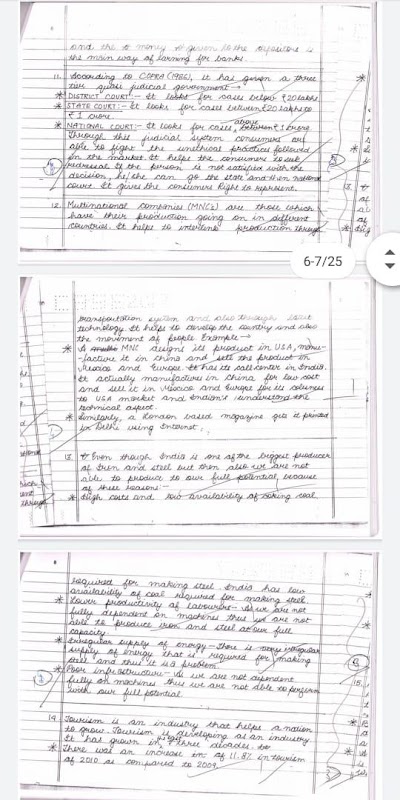 and the money is given to the depositors is
the main way of earning for banks.
11. According to COPRA (1986), it has given a three
tier quasi judicial government →
* DISTRICT COURT:- It looks for cases below ₹20 lakhs
* STATE COURT:- It looks for cases between ₹20 lakhs to
₹1 crore.
* NATIONAL COURT:- It looks for cases above ₹1 crore.
Through this judicial system consumers are
able to fight the unethical practices followed
in the market. It helps the consumers to seek
redressal. If the person is not satisfied with the
decision, he/she can go the state and then national
court. It gives the consumers Right to represent.
12. Multinational companies (MNCs) are those which
have their production going on in different
countries. It helps to interlink production through
6-7/25
transportation system and also through latest
technology. It helps to develop the country and also
the movement of people. Example →
* A MNC designs its product in USA, manu-
facture it in China and sells the product in
Mexico and Europe. It has its call center in India.
It actually manufactures in China for low cost
and sell it in Mexico and Europe for its closeness
to USA market and Indian's understand the
technical aspect.
* Similarly, a London based magazine gets it printed
in Delhi using Internet.
13. Even though India is one of the biggest producer
of iron and steel but then also we are not
able to produce to our full potential because
of these reasons:-
* High costs and low availability of coking coal
required for making steel. India has low
availability of coal required for making steel.
* Lower productivity of labourers- As we are not
fully dependent on machines thus we are not
able to produce iron and steel at our full
capacity.
* Irregular supply of energy- There is irregular
supply of energy that is required for making
steel and thus it is a problem.
* Poor infrastructure- As we are not dependent
fully on machines thus we are not able to perform
with our full potential.
14. Tourism is an industry that helps a nation
to grow. Tourism is developing as an industry.
It has grown in three decades.
* There was an increase in of 11.8% in tourism
of 2010 as compared to 2009.